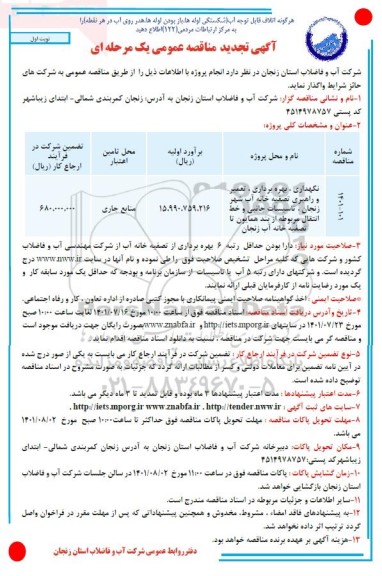 هرگونه اتلاف قابل توجه آب(شکستگی لوله ها،باز بودن لوله ها،هدر روی آب در هر نقطه)را
به مرکز ارتباطات مردمی(۱۲۲)اطلاع دهید
نوبت اول
آگهی تجدید مناقصه عمومی یک مرحله ای
شرکت آب و فاضلاب استان زنجان در نظر دارد انجام پروژه با اطلاعات ذیل را از طریق مناقصه عمومی به شرکت های
حائز شرایط واگذار نماید.
۱-نام و نشانی مناقصه گزار: شرکت آب و فاضلاب استان زنجان به آدرس: زنجان کمربندی شمالی- ابتدای زیباشهر
کد پستی ۴۵۱۴۹۷۸۷۵۷
۲-عنوان و مشخصات کلی پروژه:
شماره مناقصه
نام و محل پروژه
برآورد اولیه (ریال)
محل تامین اعتبار
تضمین شرکت در فرآیند ارجاع کار (ریال)
نگهداری ، بهره برداری ، تعمیر
و راهبری تصفیه خانه آب شهر
زنجان ، تاسیسات جانبی و خط
انتقال مربوطه از سد همایون تا
تصفیه خانه آب زنجان
۱۵.۹۹۰.۷۵۹.۲۱۶
منابع جاری
۶۸۰.۰۰۰.۰۰۰
۳-صلاحیت مورد نیاز: دارا بودن حداقل رتبه ۶ بهره برداری از تصفیه خانه آب از شرکت مهندسی آب و فاضلاب
کشور و شرکت هایی که کلیه مراحل تشخیص صلاحیت فوق را طی نموده و نام آنها در سایت www.nww.ir درج
گردیده است. و شرکتهای دارای رتبه ۵ آب یا تاسیسات از سازمان برنامه و بودجه که حداقل یک مورد سابقه کار و
یک مورد رضایت نامه از کارفرمایان قبلی ارائه نمایند.
*صلاحیت ایمنی :اخذ گواهینامه صلاحیت ایمنی پیمانکاری یا مجوز کتبی صادره از اداره تعاون ، کار و رفاه اجتماعی.
۴-تاریخ و آدرس دریافت اسناد مناقصه: اسناد مناقصه فوق از ساعت ۱۰:۰۰ مورخ ۱۴۰۱/۰۷/۱۶ لغایت ساعت ۱۰:۰۰ صبح
مورخ ۱۴۰۱/۰۷/۲۳ در سایتهای http://iets.mporg.ir و www.znabfa.ir بصورت رایگان جهت دریافت موجود است
و مناقصه گر می بایست جهت شرکت در مناقصه ، نسبت به دانلود اسناد مناقصه اقدام نماید.
۵-نوع تضمین شرکت در فرآیند ارجاع کار: تضمین شرکت در فرآیند ارجاع کار می بایست به یکی از صور درج شده
در آیین نامه تضمین برای معاملات دولتی و کسر از مطالبات ارائه گردد که جزئیات به صورت مشروح در اسناد مناقصه
توضیح داده شده است.
۰۲۱-۸۸۳۴۹۶۷۰-۵
۶-مدت اعتبار پیشنهادها : مدت اعتبار پیشنهادها ۳ ماه بوده و قابل تمدید تا ۳ ماه دیگر می باشد.
۷-سایت های ثبت آگهی : http://iets.mporg.ir www.znabfa.ir , http://tender.nww.ir ,
۸-مهلت تحویل پاکات مناقصه : مهلت تحویل پاکات مناقصه فوق حداکثر تا ساعت ۱۰:۰۰ صبح مورخ ۱۴۰۱/۰۸/۰۲
می باشد.
۹-مکان تحویل پاکات: دبیرخانه شرکت آب و فاضلاب استان زنجان به آدرس زنجان کمربندی شمالی- ابتدای
زیباشهر کد پستی:۴۵۱۴۹۷۸۷۵۷
۱۰-زمان گشایش پاکات : پاکات مناقصه فوق در ساعت ۱۱:۰۰ مورخ ۱۴۰۱/۰۸/۰۲ در سالن جلسات شرکت آب و فاضلاب
استان زنجان بازگشایی خواهد شد.
۱۱-سایر اطلاعات و جزئیات مربوطه در اسناد مناقصه مندرج است.
۱۲-به پیشنهادهای فاقد امضاء ، مشروط، مخدوش و همچنین پیشنهاداتی که پس از مهلت مقرر در فراخوان واصل
گردد ترتیب اثر داده نخواهد شد.
۱۳-هزینه آگهی بر عهده برنده مناقصه خواهد بود.
دفتر روابط عمومی شرکت آب و فاضلاب استان زنجان